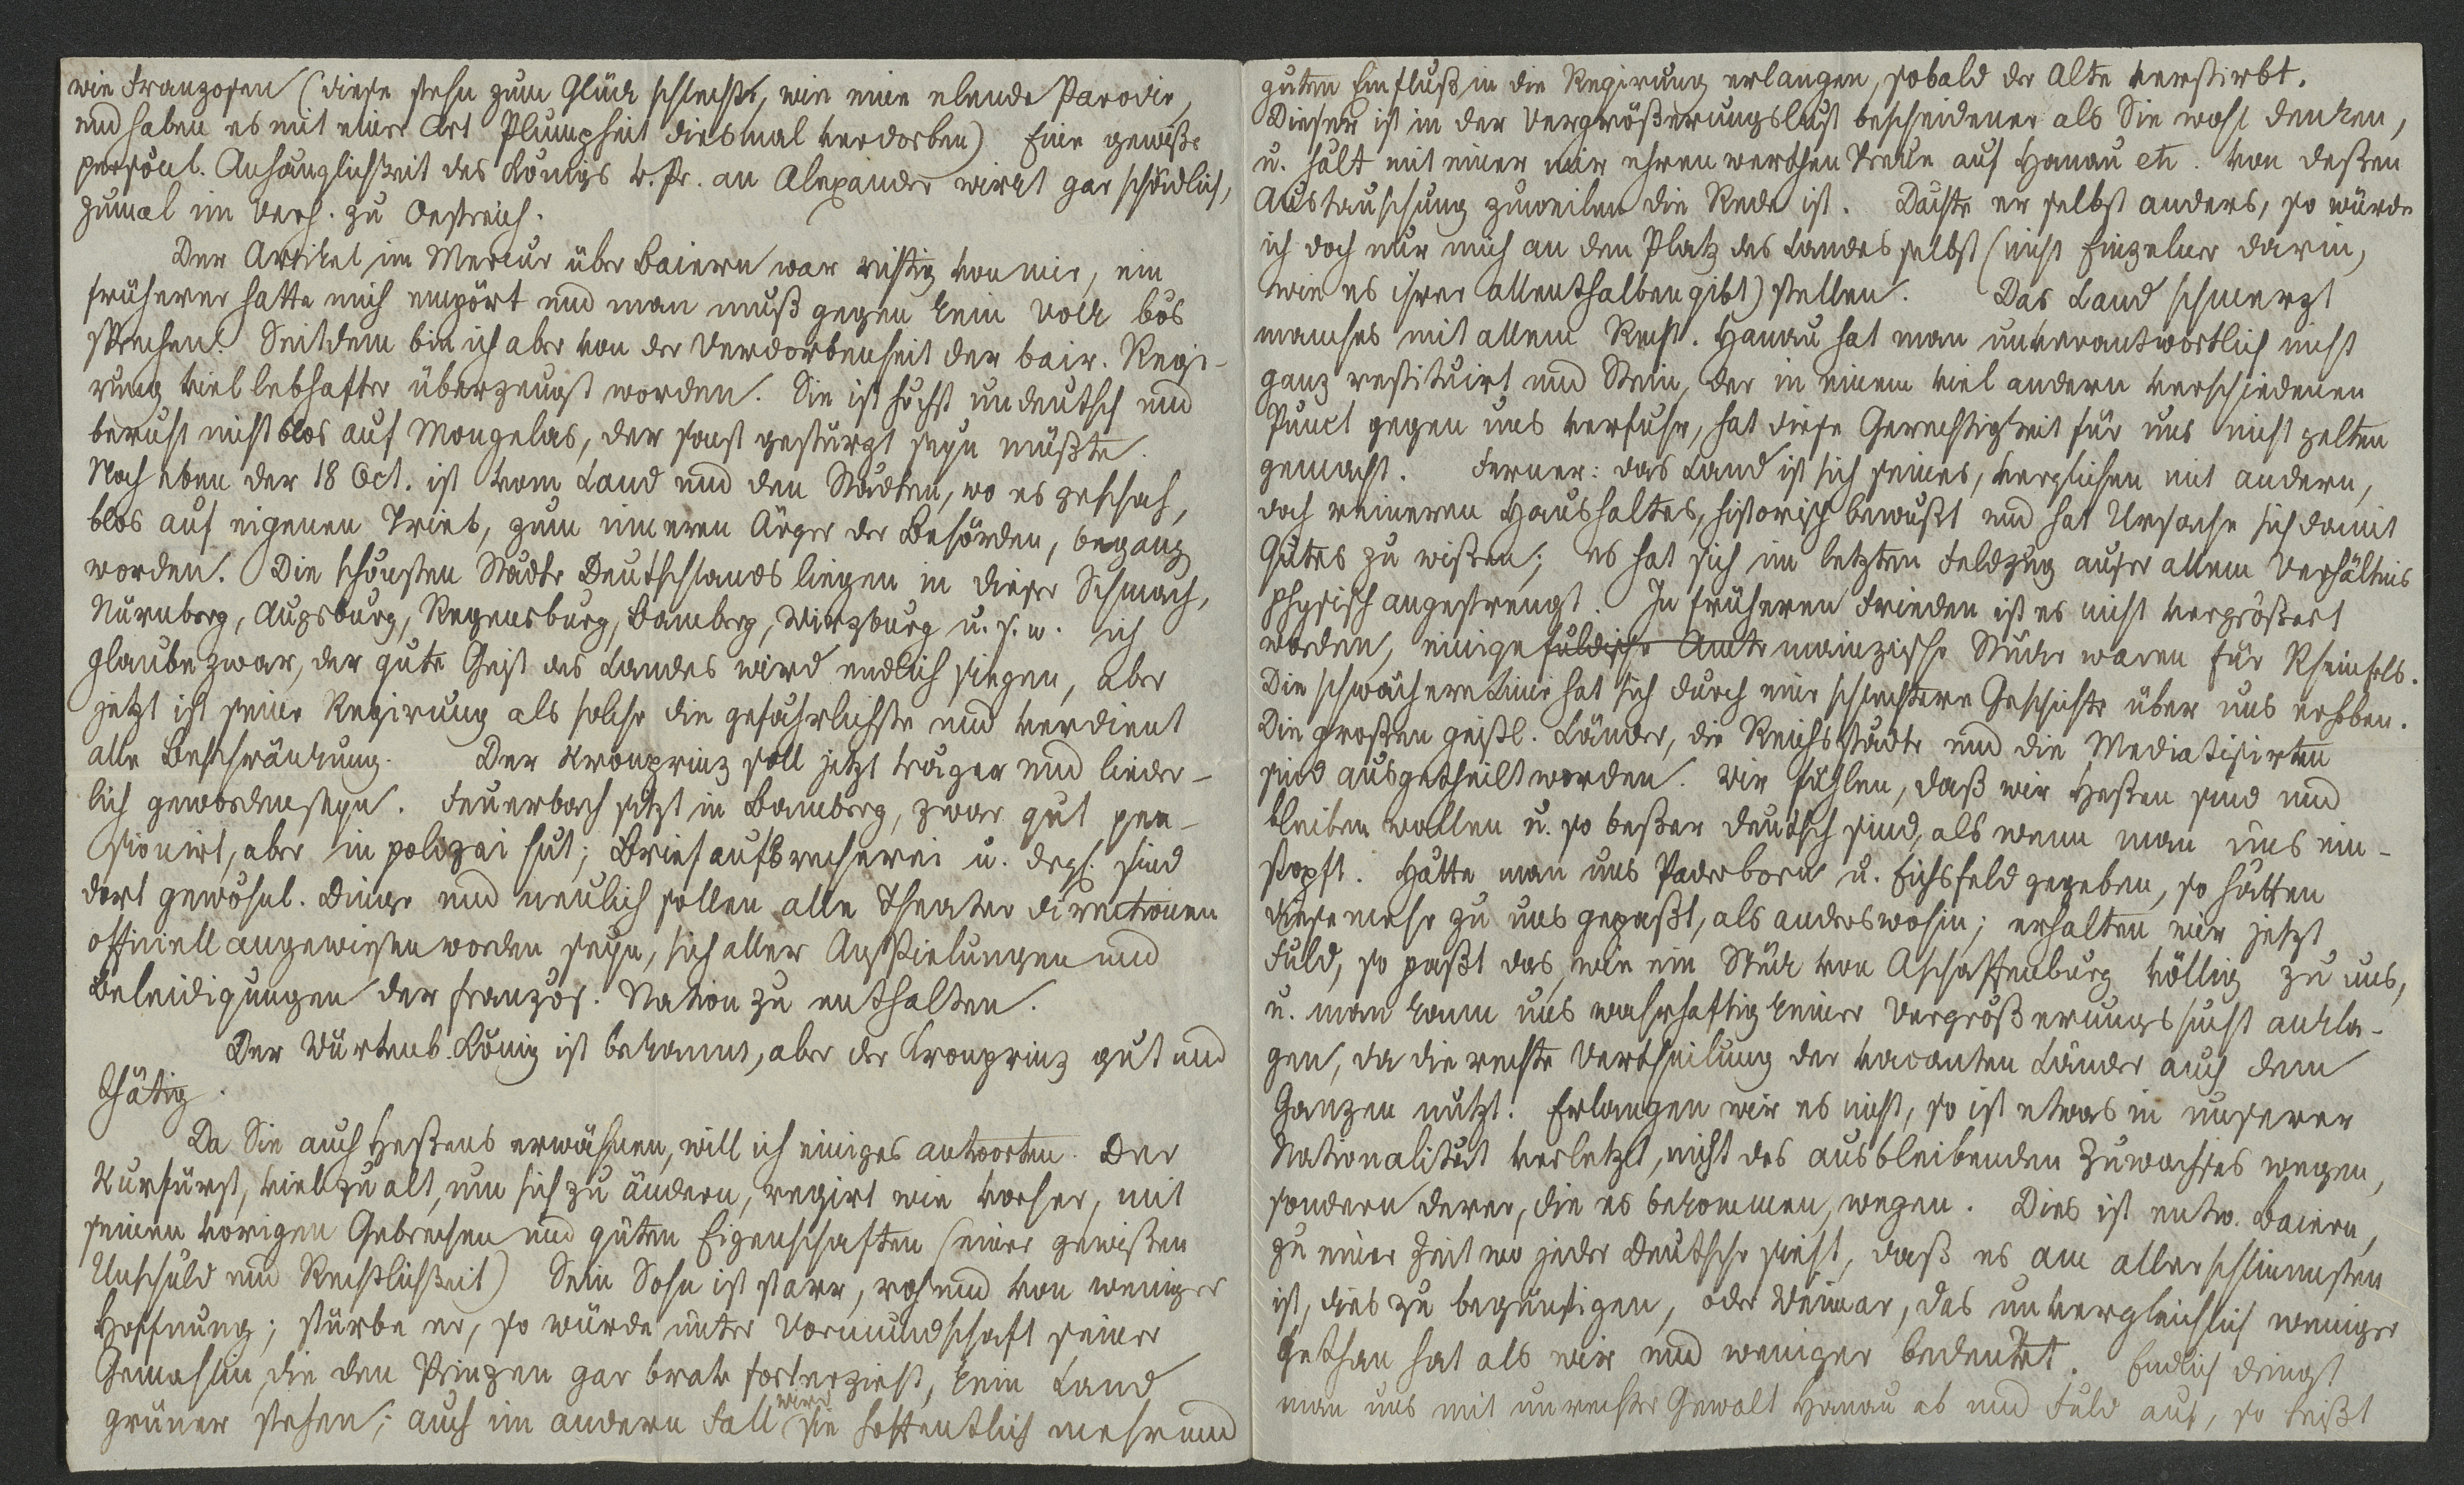 wie Franzosen (diese stehn zum Glück schlecht, wie eine elende Parodie,
und haben es mit einer Art Plumpheit diesmal verdorben) Eine gewiße
persönl. Anhänglichkeit des Königs v. Pr. an Alexander wirkt gar schädlich,
zumal im Verh. zu Oestreich.
Der Artikel im Mercur über Baiern war richtig von mir, ein
früherer hatte mich empört und man muß gegen kein Volk bös
sprechen. Seitdem bin ich aber von der Verdorbenheit der bair. Regi-
rung viel lebhafter überzeugt worden. Sie ist höchst undeutsch und
beruht nicht blos auf Mongelas, der sonst gestürzt seyn müßte.
Noch eben der 18 Oct. ist vom Land und den Städten, wo es geschah,
blos auf eigenen Trieb, zum inneren Ärger der Behörden, begang
worden. Die schönsten Städte Deutschlands liegen in dieser Schmach,
Nürnberg, Augsburg, Regensburg, Bamberg, Wirzburg u. s. w. ich
glaube zwar, der gute Geist des Landes wird endlich siegen, aber
jetzt ist seine Regirung als solche die gefährlichste und verdient
alle Beschränkung. Der Kronprinz soll jetzt träger und lieder-
lich geworden seyn. Feuerbach sitzt in Bamberg, zwar gut pen-
sionirt, aber in polizei hut; Briefaufbrecherei u. drgl. sind
dort gewöhnl. Dinge und neulich sollen alle Theater directionen
officiell angewiesen worden seyn, sich aller Anspielungen und
Beleidigungen der französ. Nation zu enthalten.
Der Würtenb. König ist bekannt, aber der Kronprinz gut und
thätig.
Da Sie auch Heßens erwähnen, will ich einiges antworten. Der
Kurfürst, viel zu alt, um sich zu ändern, regirt wie vorher, mit
seinen vorigen Gebrechen und guten Eigenschaften (einer gewißen
Unschuld und Rechtlichkeit) Sein Sohn ist starr, roh und von weniger
Hoffnung; stürbe er, so würde unter Vormundschaft seiner
Gemahlin, die den Prinzen gar brav forterzieht, kein Land
grüner stehen; auch im andern Fall wird sie hoffentlich mehr und
guten Einfluß in die Regirung erlangen, sobald der Alte verstirbt.
Dieser ist in der Vergrößerungslust bescheidener als Sie wohl denken,
u. hält mit einer mir ehrenwerthen Treue auf Hanau etc. von deßen
Austauschung zuweilen die Rede ist. Dächte er selbst anders, so würde
ich doch nur mich an den Platz des Landes selbst (nicht Einzelner darin,
wie es ihrer allenthalben gibt) stellen. Das Land schmerzt
manches mit allem Recht. Hanau hat man unverantwortlich nicht
ganz restituirt und Stein, der in einem viel andern verschiedenen
Punct gegen uns verfuhr, hat diese Gerechtigkeit für uns nicht gelten
gemacht. Ferner: das Land ist sich seines, verglichen mit andern,
doch reineren Haushaltes, historisch bewußt und hat Ursache sich damit
Gutes zu wißen; es hat sich im letzten Feldzug außer allem Verhältnis
physisch angestrengt. In früheren Frieden ist es nicht vergrößert
worden, einige fuldische Amte mainzische Stücke waren für Rheinfels.
Die schwächere Linie hat sich durch eine schlechtere Geschichte über uns erhoben.
Die großen geistl. Länder, die Reichsstädte und die Mediatisirten
sind ausgetheilt worden. Wir fühlen, daß wir Heßen sind und
bleiben wollen u. so beßer deutsch sind, als wenn man uns ein-
stopft. Hätte man uns Paderborn u. Eichsfeld gegeben, so hätten
diese mehr zu uns gepaßt, als anderswohin; erhalten wir jetzt
Fuld, so paßt das, wie ein Stück von Aschaffenburg völlig zu uns,
u. man kann uns wahrhaftig keiner Vergrößerungssucht ankla-
gen, da die rechte Vertheilung der vacanten Länder auch dem
Ganzen nutzt. Erlangen wir es nicht, so ist etwas in unserer
Nationalität verletzt, nicht des ausbleibenden Zuwachses wegen,
sondern derer, die es bekommen, wegen. Dies ist entw. Baiern,
zu einer Zeit wo jeder Deutsche sieht, daß es am allerschlimmsten
ist, dies zu begünstigen, oder Weimar, das unvergleichlich weniger
gethan hat als wir und weniger bedeutet. Endlich dringt
man uns mit unrechter Gewalt Hanau ab und Fuld auf, so beißt